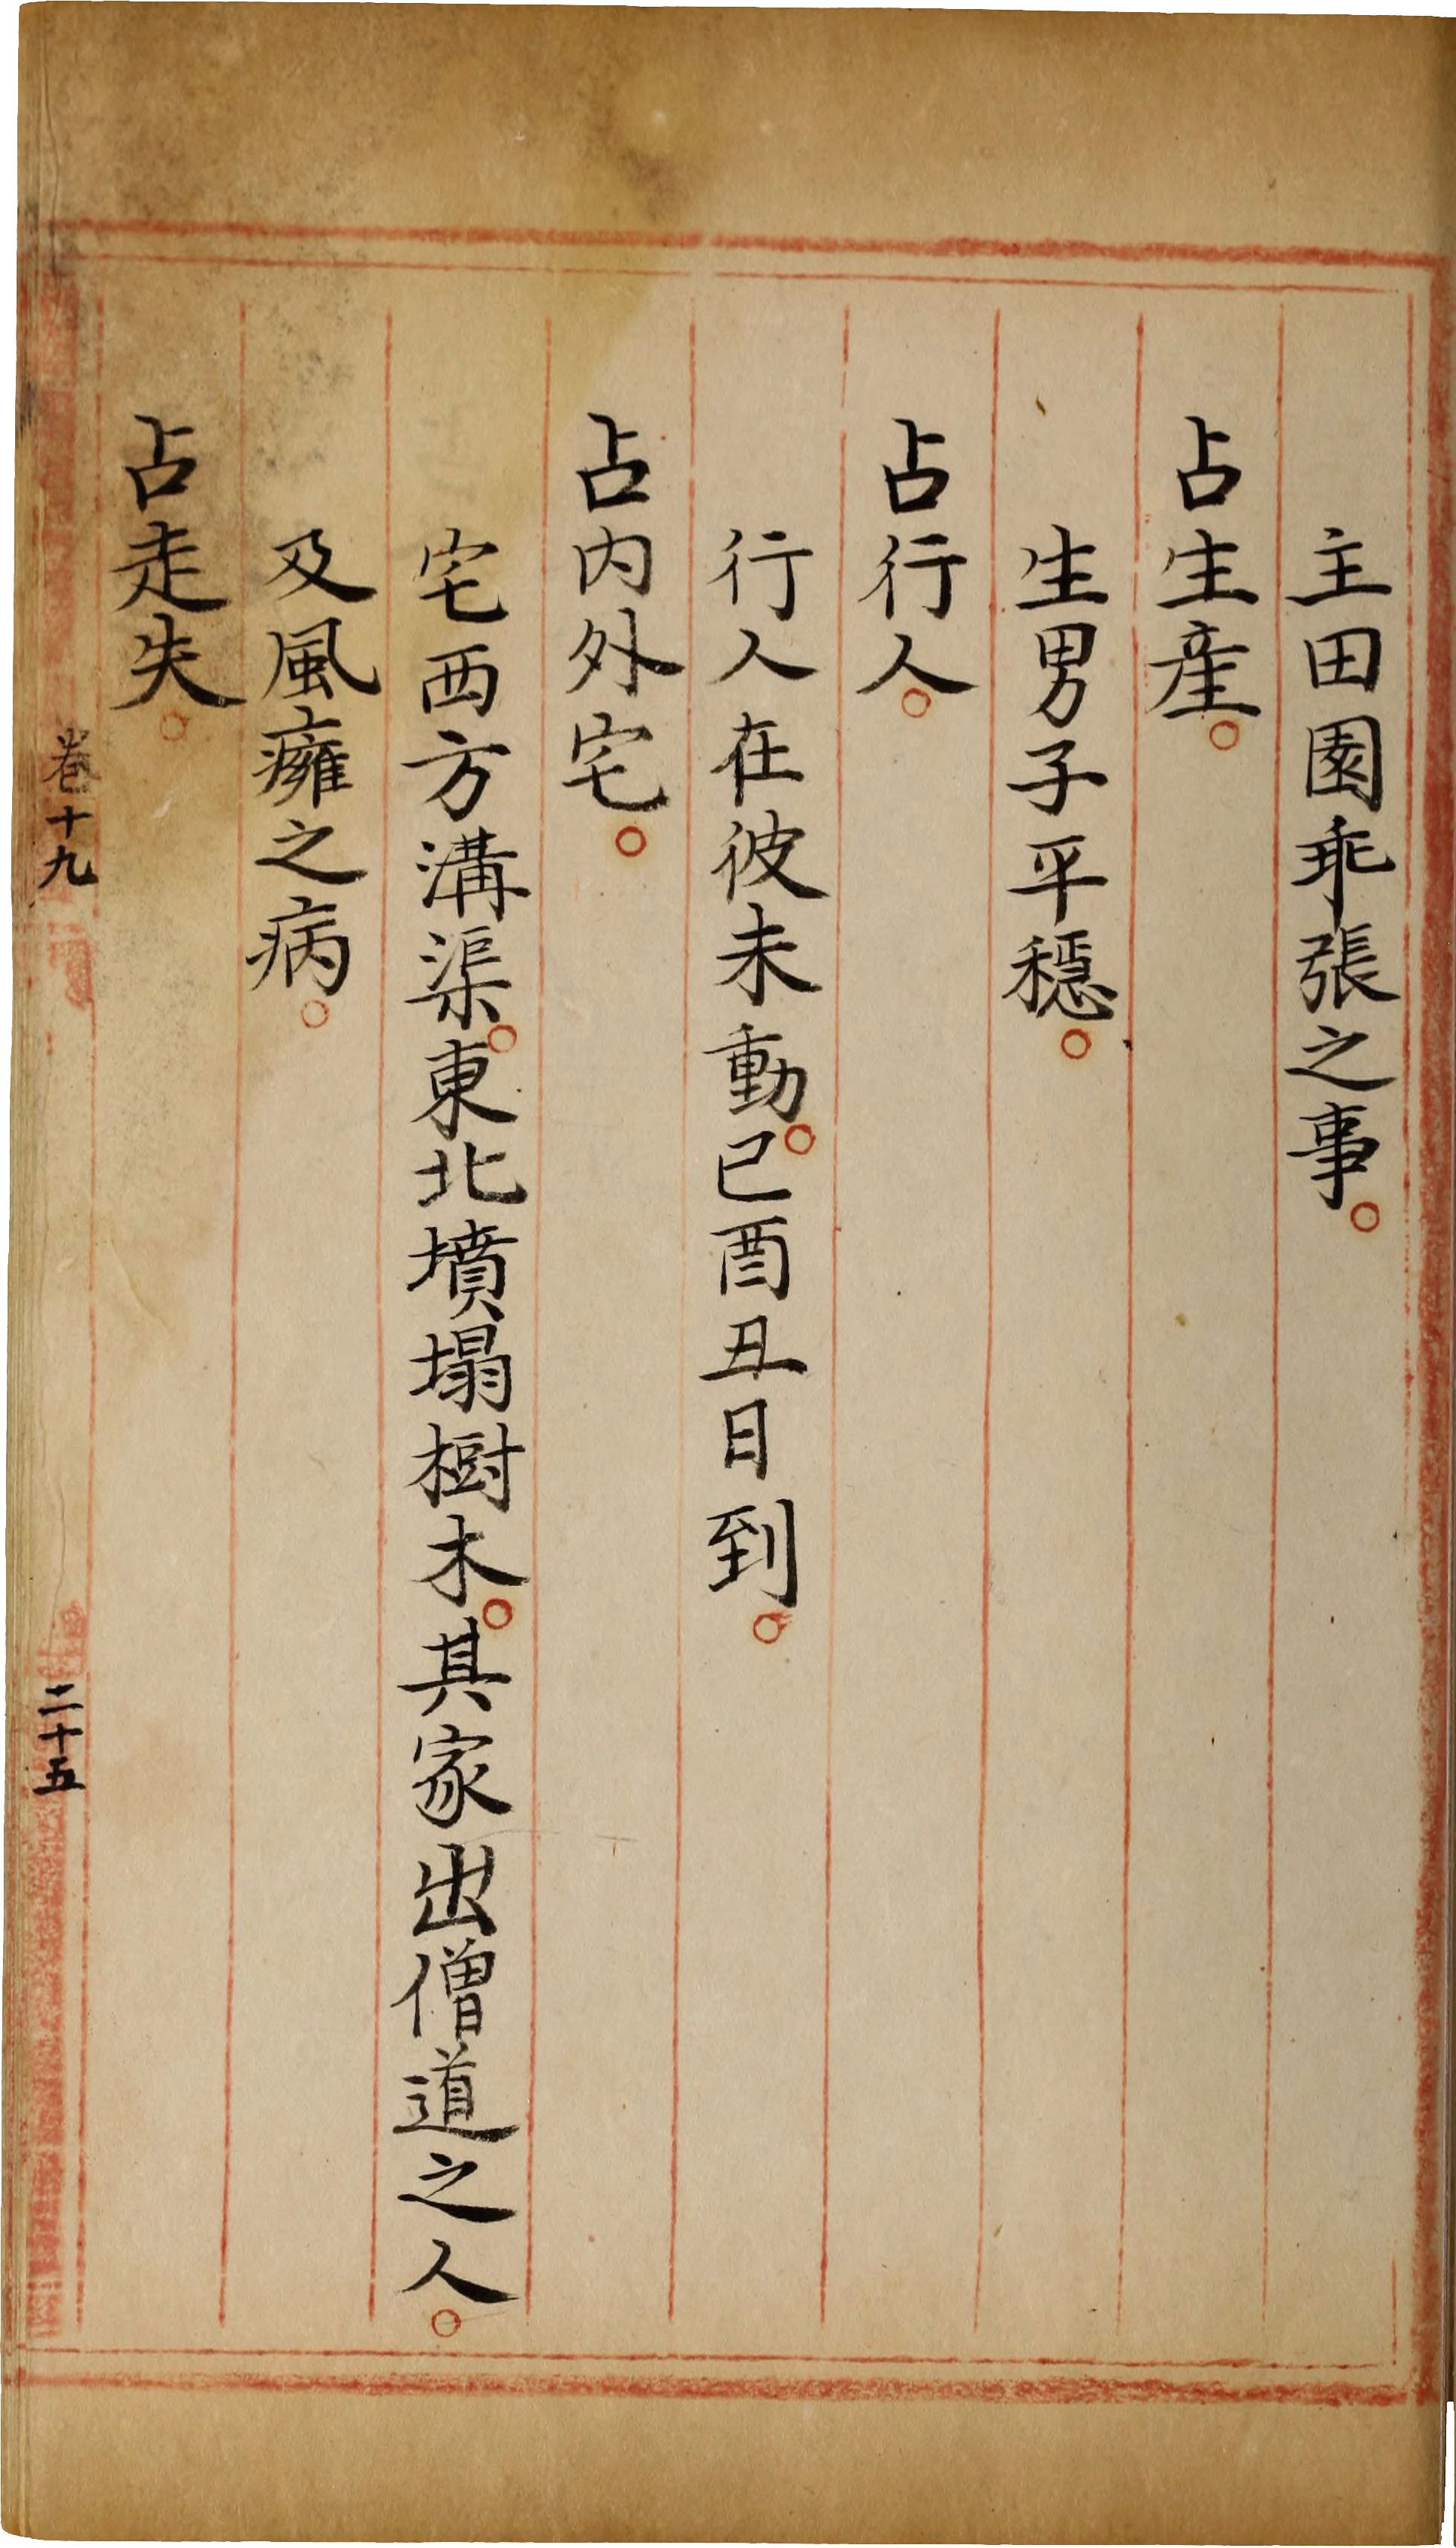 主田園乖張之事。
占生產。
生男子平穩。
占行人。
行人在彼未動。巳酉丑日到。
占內外宅。
宅西方溝渠。東北墳塌樹木。其家出僧道之人。
及風癱之病。
占走失。
卷十九
二十五